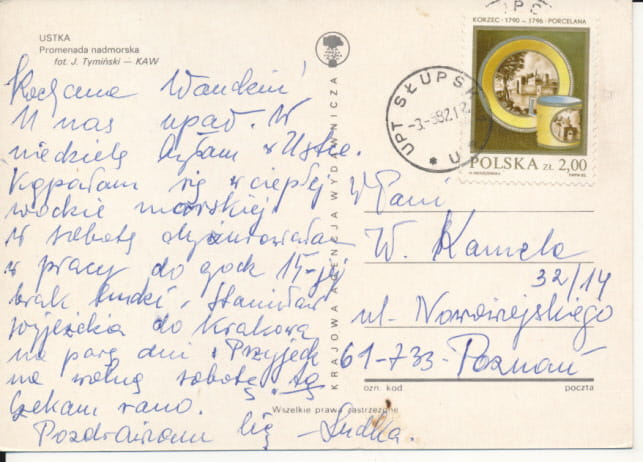 USTKA
Promenada nadmorska
fot. J. Tymiński — KAW
Kochana Wandziu!
U nas upał. W
niedzielę byłam w Ustce.
Kąpałam się w ciepłej
wodzie morskiej.
W sobotę dyżurowałam
w pracy do godz 15-tej
brak ludzi. Stanisław
wyjeżdża do Krakowa
na parę dni. Przyjedź
na wolną sobotę.
Czekam rano.
Pozdrawiam Cię —
KRAJOWA AGENCJA WYDAWNICZA
KORZEC · 1790 – 1796 · PORCELANA
POLSKA ZŁ 2,00
UPT SŁUPSK
W Pani
W. Kamela
32/14
ul. Nowowiejskiego
61-733 Poznań
ozn. kod
poczta
Wszelkie prawa zastrzeżone